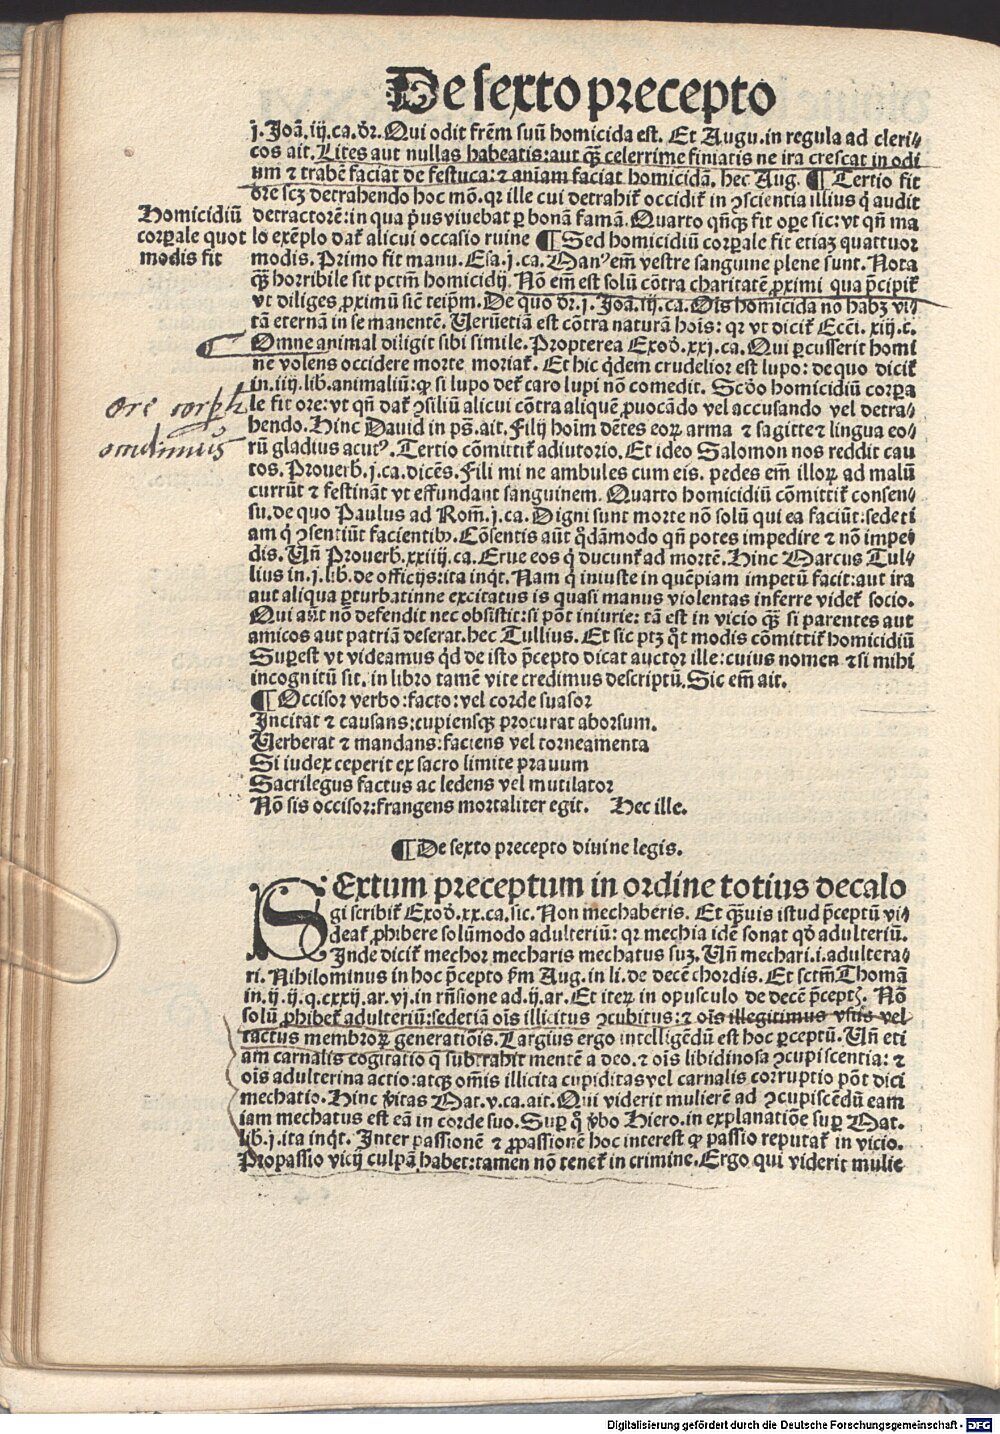 De sexto precepto
j. Joã. iij. ca. dr̃. Qui odit frẽm suũ homicida est. Et Augu. in regula ad cleri⸗
cos ait. Lites aut nullas habeatis: aut qꝫ celerrime finiatis ne ira crescat in odi
um ⁊ trabẽ faciat de festuca: ⁊ aniam faciat homicidã. hec Aug. ¶ Tertio fit
ore scꝫ detrahendo hoc mõ. qr ille cui detrahit᷑ occidit᷑ in ꝯscientia illius q̇ audit
Homicidiũ
corpale quot
modis fit
detractorẽ: in qua pͥus viuebat ꝑ bonã famã. Quarto qñqꝫ fit oꝑe sic: vt qñ ma
lo exẽplo dat᷑ alicui occasio ruine ¶ Sed homicidiũ corꝑale fit etiaꝫ quattuor
modis. Primo fit manu. Esa. j. ca. Manꝰ em̃ vestre sanguine plene sunt. Nota
qꝫ horribile sit pctm̃ homicidij. Nõ em̃ est solũ cõtra charitatẽ ꝓximi qua p̃cipit᷑
vt diliges ꝓximũ sic̃ teip̃m. De quo dr̃. j. Joã. iij. ca. Oĩs homicida no habꝫ vi⸗
tã eternã in se manentẽ. Verũetiã est cõtra naturã hoĩs: qr vt dicit᷑ Ecc̃i. xiij. c.
Omne animal diligit sibi simile. Propterea Exoð. xxj. ca. Qui ꝑcusserit homi
nẽ volens occidere morte moriat᷑. Et hic q̇dem crudelior est lupo: de quo dicit᷑
in. iiij. lib. animaliũ: ꝙ si lupo det᷑ caro lupi nõ comedit. Scðo homicidiũ corꝑa
le fit ore: vt qñ dat᷑ ꝯsiliũ alicui cõtra aliquẽ ꝓuocãdo vel accusando vel detra⸗
ore corpli
occidimus
hendo. Hinc Dauid in ps̃. ait. Filij hoĩm dẽtes eoꝝ arma ⁊ sagitte ⁊ lingua eo⸗
rũ gladius acutꝰ. Tertio cõmittit᷑ adiutorio. Et ideo Salomon nos reddit cau
tos. Prouerb̃. j. ca. dicẽs. Fili mi ne ambules cum eis. pedes em̃ illoꝝ ad malũ
currũt ⁊ festinãt vt effundant sanguinem. Quarto homicidiũ cõmittit᷑ consen⸗
su. de quo Paulus ad Rom̃. j. ca. Digni sunt morte nõ solũ qui ea faciũt: sed eti
am q̇ ꝯsentiũt facientibꝰ. Cõsentis aũt q̊dãmodo qñ potes impedire ⁊ nõ impe⸗
dis. Vñ Prouerb̃. xxiiij. ca. Erue eos q̇ ducunt᷑ ad mortẽ. Hinc Marcus Tul⸗
lius in. j. lib̃. de officijs: ita inq̇t. Nam q̇ iniuste in quẽpiam impetũ facit: aut ira
aut aliqua ꝑturbatinne excitatus is quasi manus violentas inferre videt᷑ socio.
Qui aũt nõ defendit nec obsistit: si põt iniurie: tã est in vicio qꝫ si parentes aut
amicos aut patriã deserat. hec Tullius. Et sic ptꝫ q̇t modis cõmittit᷑ homicidiũ
Suꝑest vt videamus q̇d de isto p̃cepto dicat auctor ille: cuius nomen ⁊si mihi
incognitũ sit. in libro tamẽ vite credimus descriptũ. Sic em̃ ait.
¶ Occisor verbo: facto: vel corde suasor
Incitat ⁊ causans: cupiensqꝫ procurat aborsum.
Verberat ⁊ mandans: faciens vel torneamenta
Si iudex ceperit ex sacro limite prauum
Sacrilegus factus ac ledens vel mutilator
Nõ sis occisor: frangens mortaliter egit. Hec ille.
¶ De sexto precepto diuine legis.
SExtum preceptum in ordine totius decalo
gi scribit᷑ Exoð. xx. ca. sic. Non mechaberis. Et qꝫuis istud p̃ceptũ vi⸗
deat᷑ ꝓhibere solũmodo adulteriũ: qr mechia idẽ sonat qð adulteriũ.
Inde dicit᷑ mechor mecharis mechatus suꝫ. Vñ mechari. i. adultera⸗
ri. Nihilominus in hoc p̃cepto ẜm Aug. in li. de decẽ chordis. Et sctm̃ Thomã
in. ij. ij. q. cxxij. ar. vj. in rñsione ad. ij. ar. Et iteꝝ in opusculo de decẽ p̃ceptꝭ. Nõ
solũ ꝓhibet᷑ adulteriũ: sed etiã oĩs illicitus ꝯcubitus: ⁊ oĩs illegitimus vsus vel
tactus membroꝝ generatiõis. Largius ergo intelligẽdũ est hoc ꝑceptũ. Vñ eti
am carnalis cogitatio q̃ subtrahit mentẽ a deo. ⁊ oĩs libidinosa ꝯcupiscentia: ⁊
oĩs adulterina actio: atqꝫ om̃is illicita cupiditas vel carnalis corruptio põt dici
mechatio. Hinc v̾itas Mat. v. ca. ait. Qui viderit mulierẽ ad ꝯcupiscẽdũ eam
iam mechatus est eã in corde suo. Suꝑ q̊ v̾bo Hiero. in explanatiõe suꝑ Mat.
lib. j. ita inq̇t. Inter passionẽ ⁊ ꝓpassionẽ hoc interest ꝙ passio reputat᷑ in vicio.
Propassio vicij culpã habet: tamen nõ tenet᷑ in crimine. Ergo qui viderit mulie
Digitalisierung gefördert durch die Deutsche Forschungsgemeinschaft - DFG